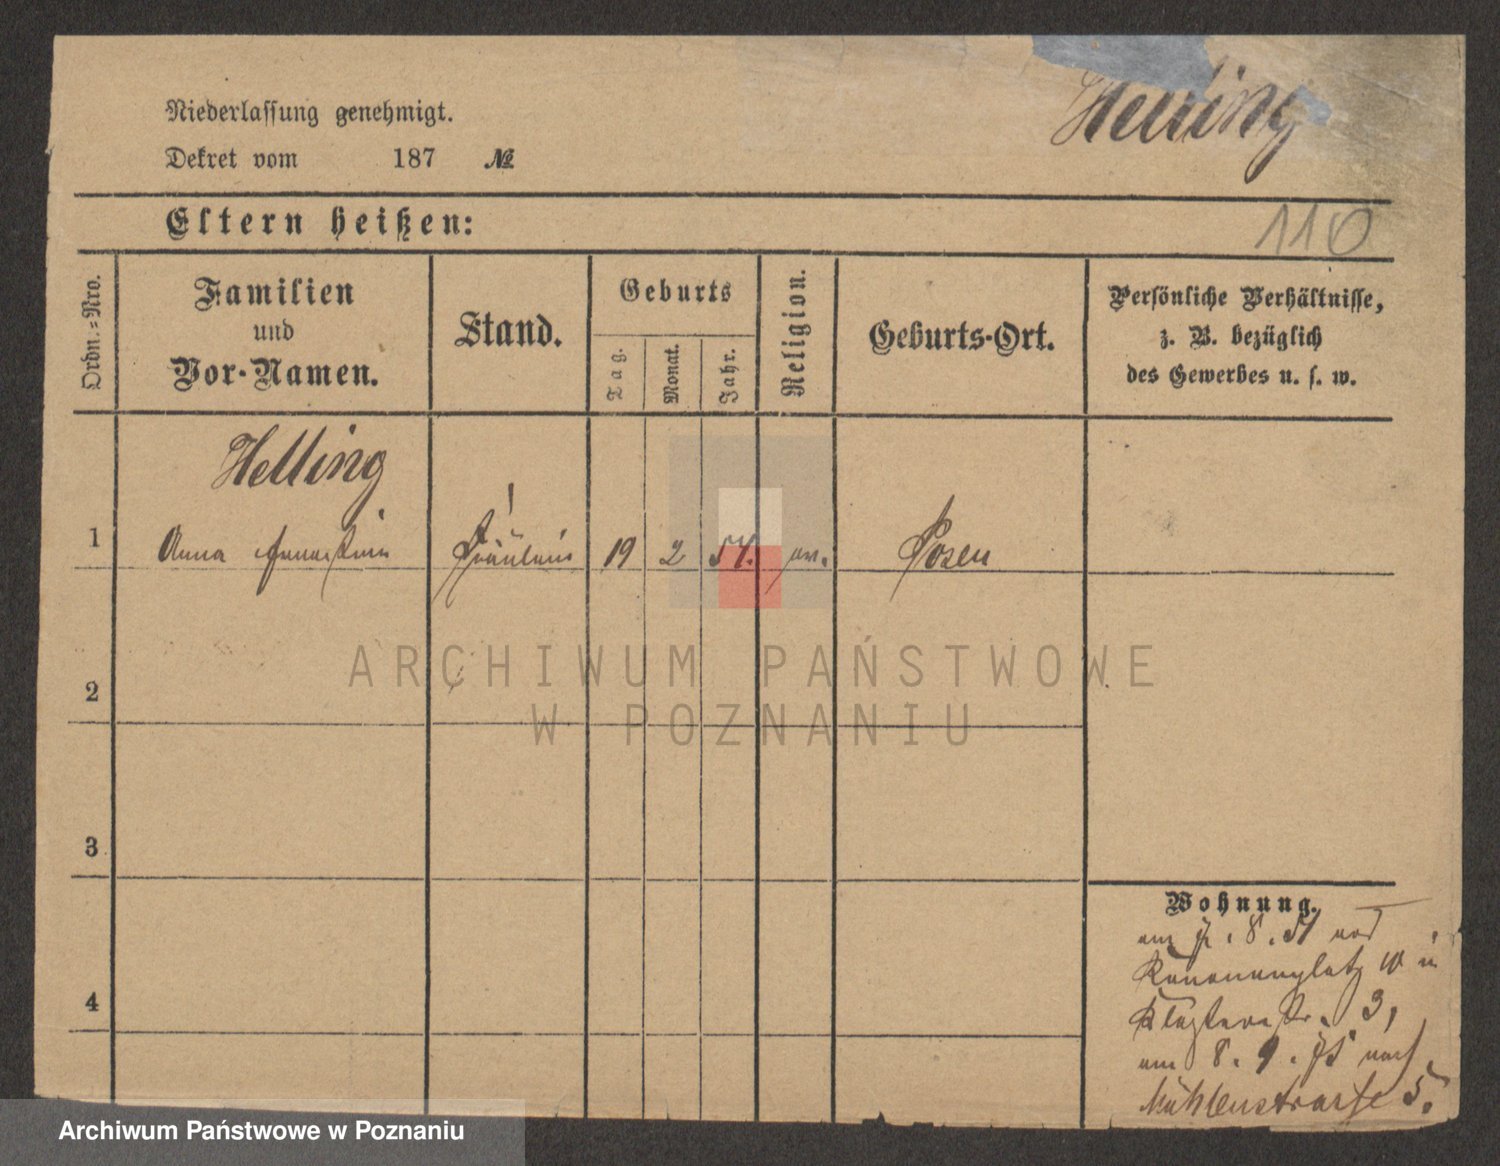 Helling
Niederlassung genehmigt.
Dekret vom 187 №
110
Eltern heißen:
Ordn.=Nro.
Familien
und
Vor-Namen.
Stand.
Geburts
Tag.
Monat.
Jahr.
Religion.
Geburts-Ort.
Persönliche Verhältnisse,
z. B. bezüglich
des Gewerbes u. s. w.
Helling
1 Anna Fräulein 19 2 54. ev. Posen
2
3
4
Wohnung.
Kanonenplatz 10
3,
am 8. 9. 75 nach
Mühlenstrasse 5.
ARCHIWUM PAŃSTWOWE
W POZNANIU
Archiwum Państwowe w Poznaniu